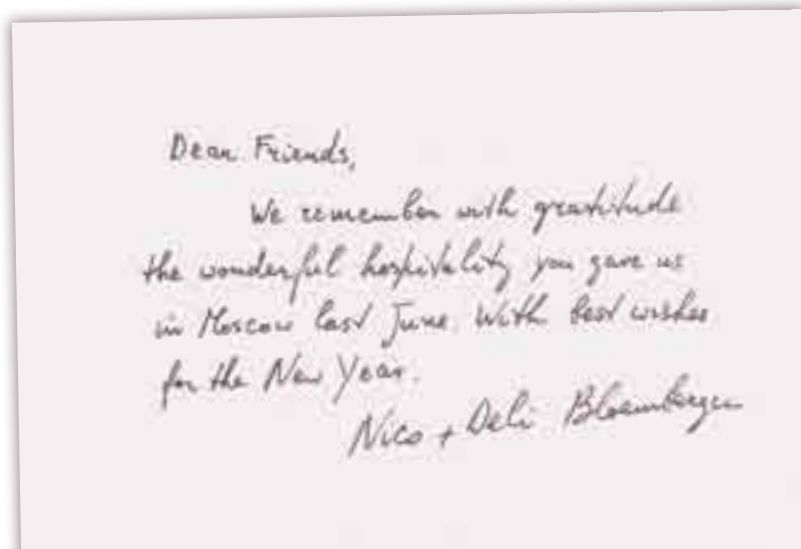 Dear Friends,
We remember with gratitude
the wonderful hospitality you gave us
in Moscow last June. With best wishes
for the New Year.
Nico + Deli Bloembergen